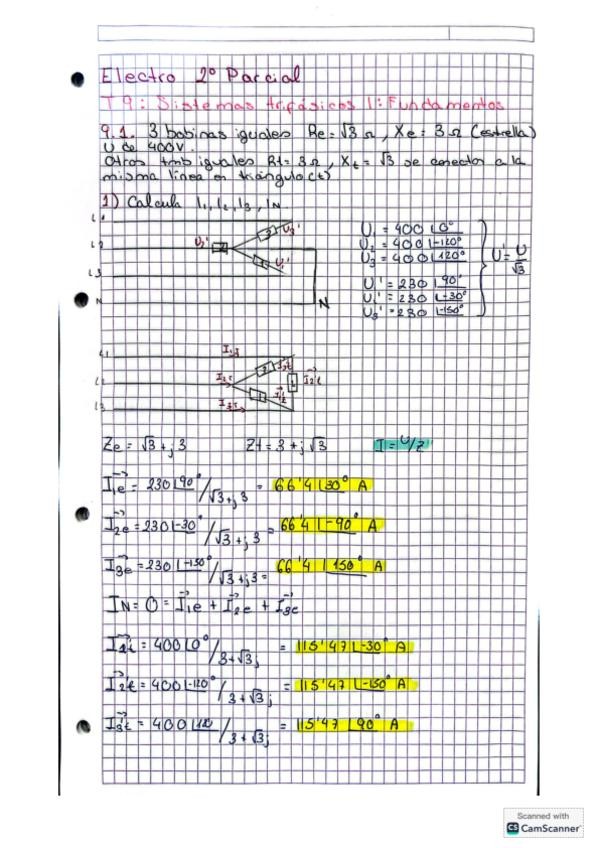 Electro 2º Parcial
T9: Sistemas trifásicos I: Fundamentos
9.1. 3 bobinas iguales Re = √3 Ω, Xe = 3 Ω (estrella)
U de 400V.
Otras tmb iguales Rt = 3 Ω, Xt = √3 se conectan a la
misma línea en triángulo (t)
1) Calcula I1, I2, I3, IN.
L1
L2
L3
N
N
U1 = 400 |0°
U2 = 400 |-120°
U3 = 400 |120°
U' = U/√3
U1' = 230 |90°
U1' = 230 |-30°
U3' = 230 |-150°
L1
L2
L3
Ze = √3 + j3 Zt = 3 + j√3 I = U/Z
I1e = 230 |90° / √3+j3 = 66'4 |30° A
I2e = 230 |-30° / √3+j3 = 66'4 |-90° A
I3e = 230 |-150° / √3+j3 = 66'4 |150° A
IN = 0 = I1e + I2e + I3e
I1t = 400 |0° / 3+√3j = 115'47 |-30° A
I2t = 400 |-120° / 3+√3j = 115'47 |-150° A
I3t = 400 |120 / 3+√3j = 115'47 |90° A
Scanned with
CS CamScanner